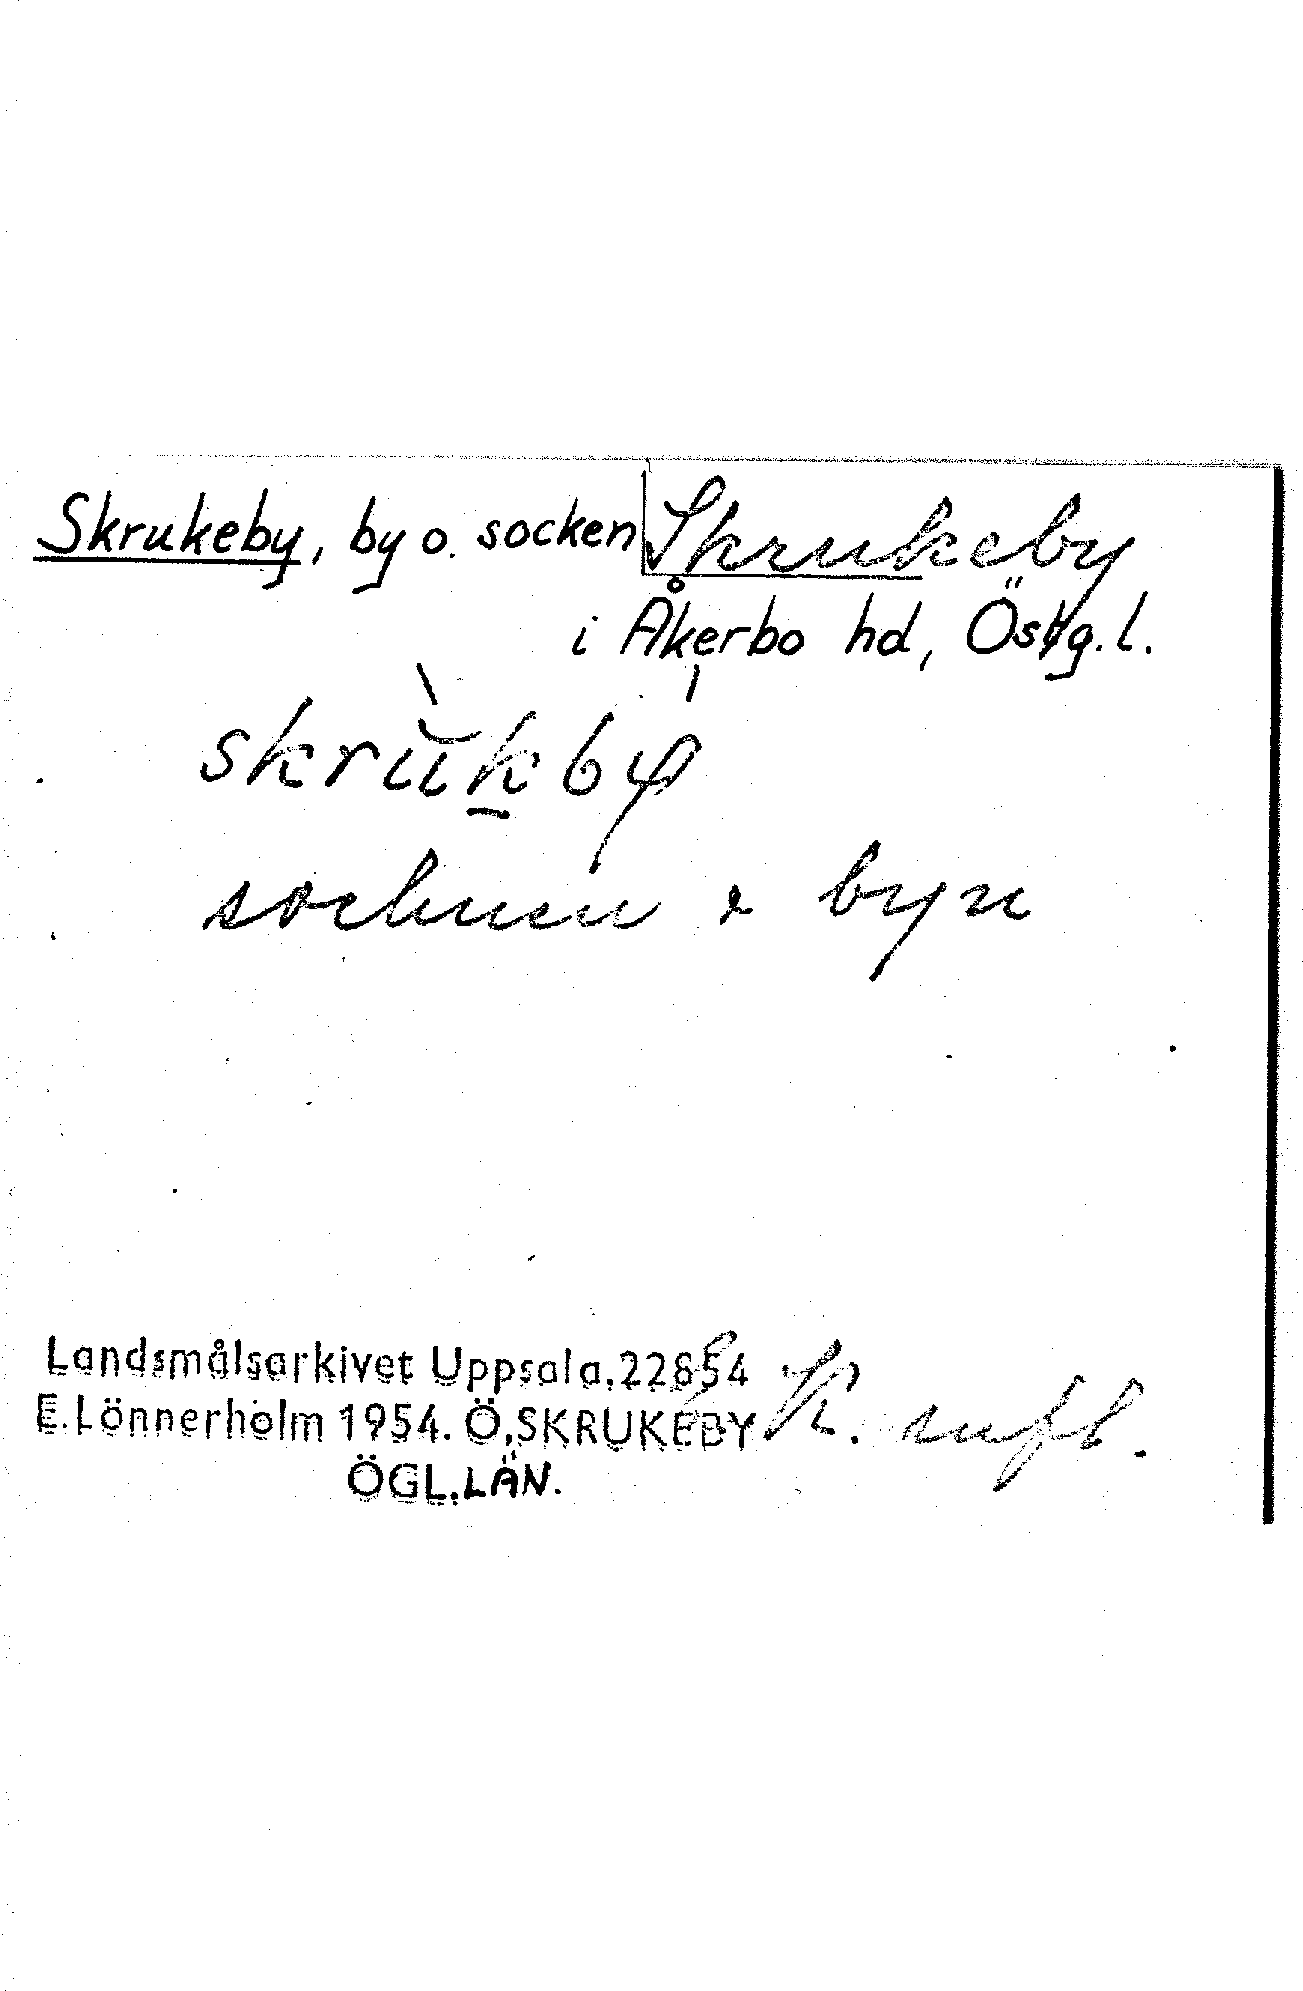 Skrukeby, by o. socken Skrukeby
i Åkerbo hd, Östg.l.
skrukby
socknen & byn
Landsmålsarkivet Uppsala.22854
E.Lönnerholm 1954. Ö.SKRUKEBY K.
ÖGL.LÄN.